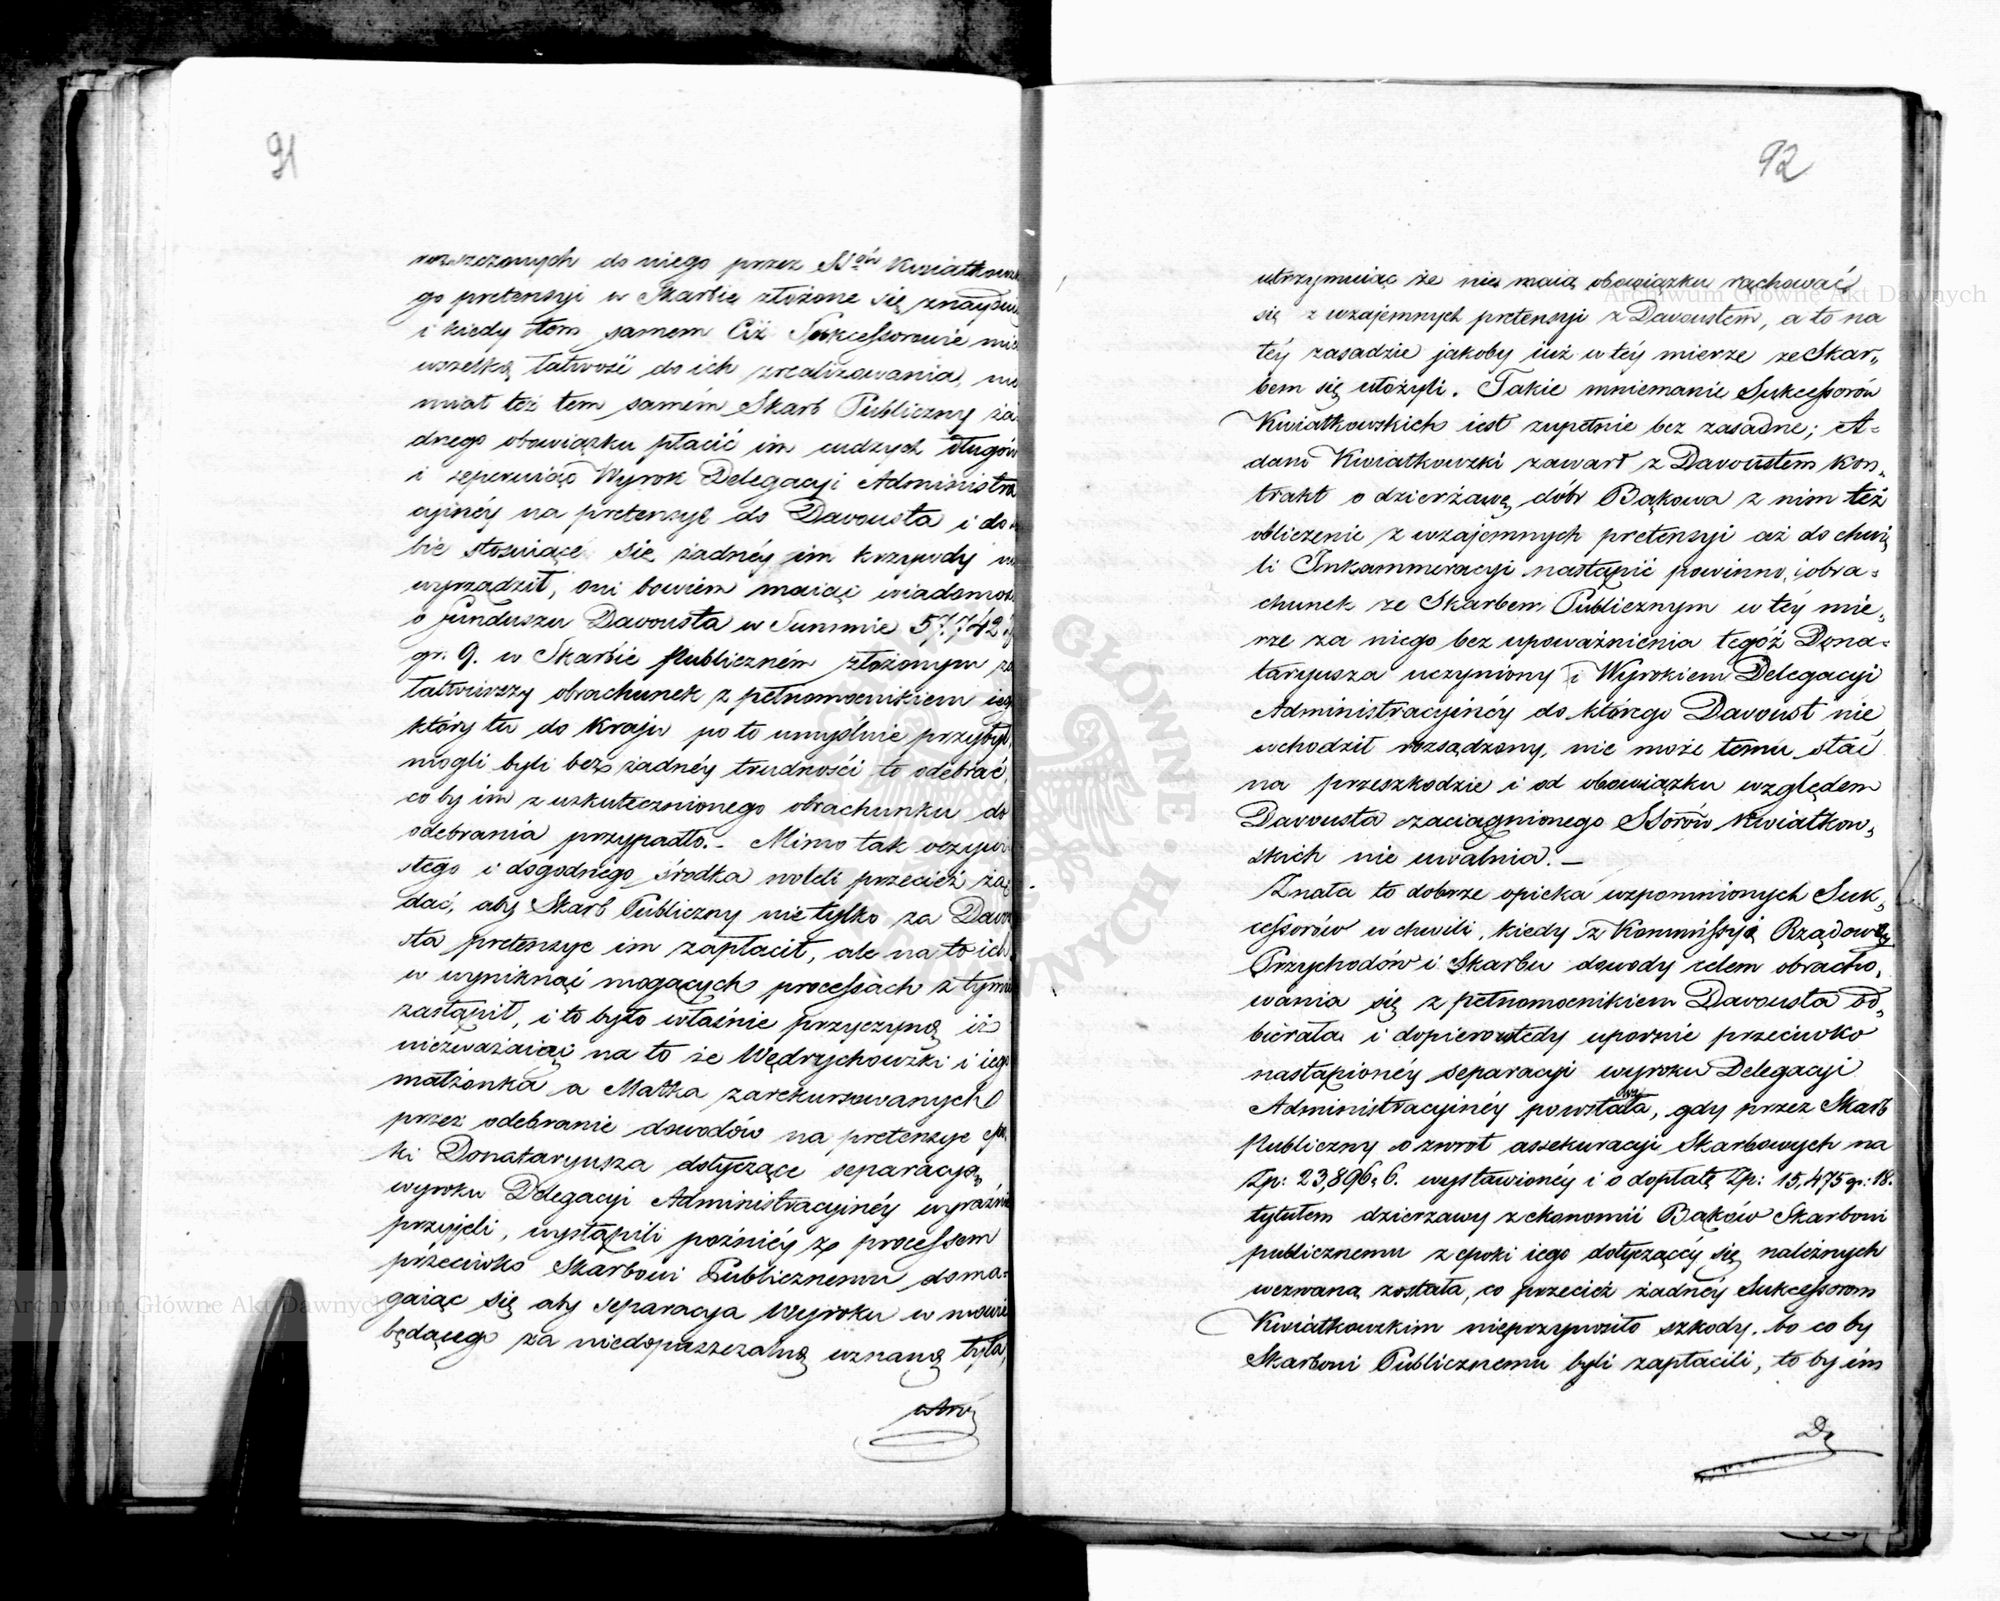 91
rozszczonych do niego przez SSów Kwiatkowskie
go pretensyi w Skarbie złożone się znayduie
i kiedy tem samem Ciż Sukcessorowie mie
wszelką łatwość do ich zrealizowania, nie
miał też tem samém Skarb Publiczny ża
dnego obowiązku płacić im cudzych długów
i seperuiąc Wyrok Delegacyi Administra
cyinéy na pretensye do Davousta i do
bie stosuiące się żadnéy im krzywdy nie
wyrządził, oni bowiem maiąc wiadomość
o funduszu Davousta w Summie 57,742
gr. 9. w Skarbie Publiczném złożonym za
łatwiwszy obrachunek z pełnomocnikiem iego
który tu do Kraju po to umyślnie przybył,
mogli byli bez żadnéy trudności to odebrać,
co by im z uskutecznionego obrachunku do
odebrania przypadło. – Mimo tak oczywi
stego i dogodnego środka woleli przecież żą
dać, aby Skarb Publiczny nie tylko za Davou
sta pretensye im zapłacił, ale na to ich
w wyniknąć mogących processach z tymże
zastąpił, i to było właśnie przyczyną iż
niezważaiąc na to że Wędrychowski i iego
małżonka a Matka zarekursowanych
przez odebranie dowodów na pretensye epo
ki Donataryusza dotyczące separacyą
wyroku Delegacyi Administracyinéy wyraźnie
przyjęli, wystąpili poźniéy ze processem
przeciwko Skarbowi Publicznemu doma=
gaiąc się aby separacya Wyroku w mowie
będącego za niedopuszczalną uznaną była,
92
utrzymuiąc że nie maią obowiązku rachować
się z wzajemnych pretensyi z Davoustem, a to na
téy zasadzie jakoby iuż w téy mierze ze Skar„
bem się ułożyli. Takie mniemanie Sukcessorów
Kwiatkowskich iest zupełnie bez zasadne; A=
dam Kwiatkowski zawarł z Davoustem kon„
trakt o dzierżawę dóbr Bąkowa z nim też
obliczenie z wzajemnych pretensyi aż do chwi„
li Inkammeracyi nastąpić powinno, i obra=
chunek ze Skarbem Publicznym w téy mie„
rze za niego bez upoważnienia tegóż Dona=
taryusza uczyniony i Wyrokiem Delegacyi
Administracyinéy do którego Davoust nie
wchodził rozsądzony, nie może temu stać
na przeszkodzie i od obowiązku względem
Davousta zaciągnionego SSorów Kwiatkow„
skich nie uwalnia. –
Znała to dobrze opieka wzpomnionych Suk„
cessorów w chwili, kiedy z Kommissyi Rządowéy
Przychodów i Skarbu dowody celem obracho„
wania się z pełnomocnikiem Davousta od„
bierała i dopiero wtedy upornie przeciwko
nastąpionéy separacyi wyroku Delegacyi
Administracyinéy powstała, gdy przez Skarb
Publiczny o zwrot assekuracyi Skarbowych na
Zp: 23,896, 6. wystawionéy i o dopłatę Zp: 15,475 gr: 18.
tytułem dzierzawy z ekonomii Bąków Skarbowi
publicznemu z epoki iego dotyczącéy się należnych
wezwaną została, co przecież żadnéy Sukcessorom
Kwiatkowskim nieprzynosiło szkody, bo co by
Skarbowi Publicznemu byli zapłacili, to by im
Archiwum Główne Akt Dawnych
Archiwum Główne Akt Dawnych